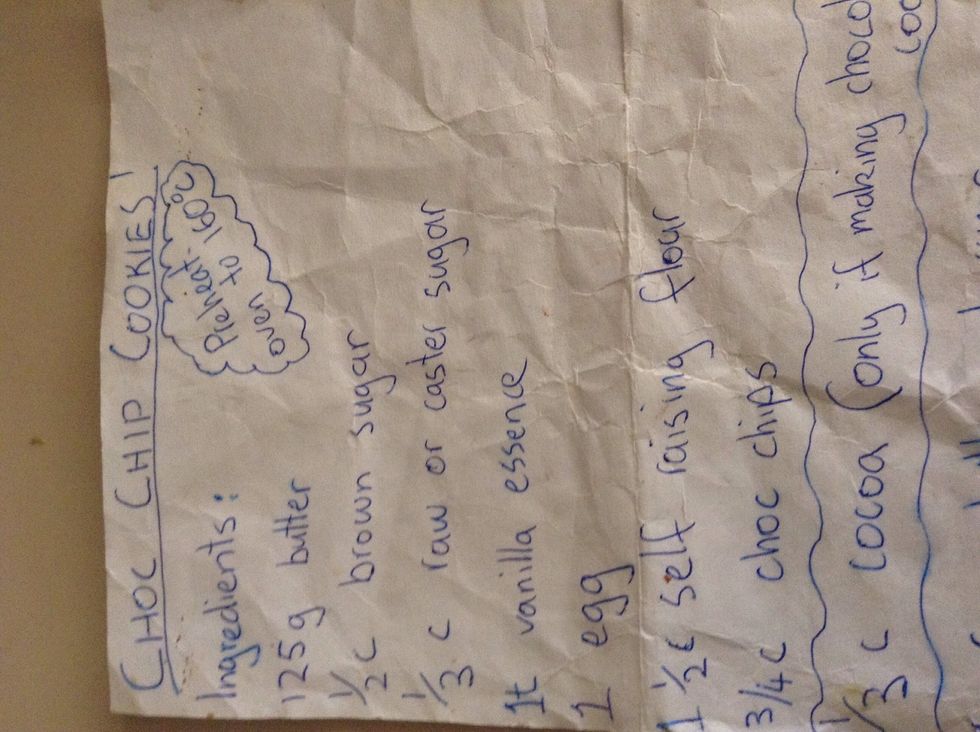 CHOC CHIP COOKIES!
Preheat
oven to 160°C
Ingredients:
125g butter
1/2 c brown sugar
1/3 c raw or caster sugar
1t vanilla essence
1 egg
1 1/2 c self raising flour
3/4 c choc chips
1/3 c cocoa (only if making chocol
coo